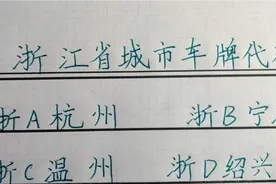 浙江省城市车牌代
浙A杭州 浙B宁
浙C温州 浙D绍兴